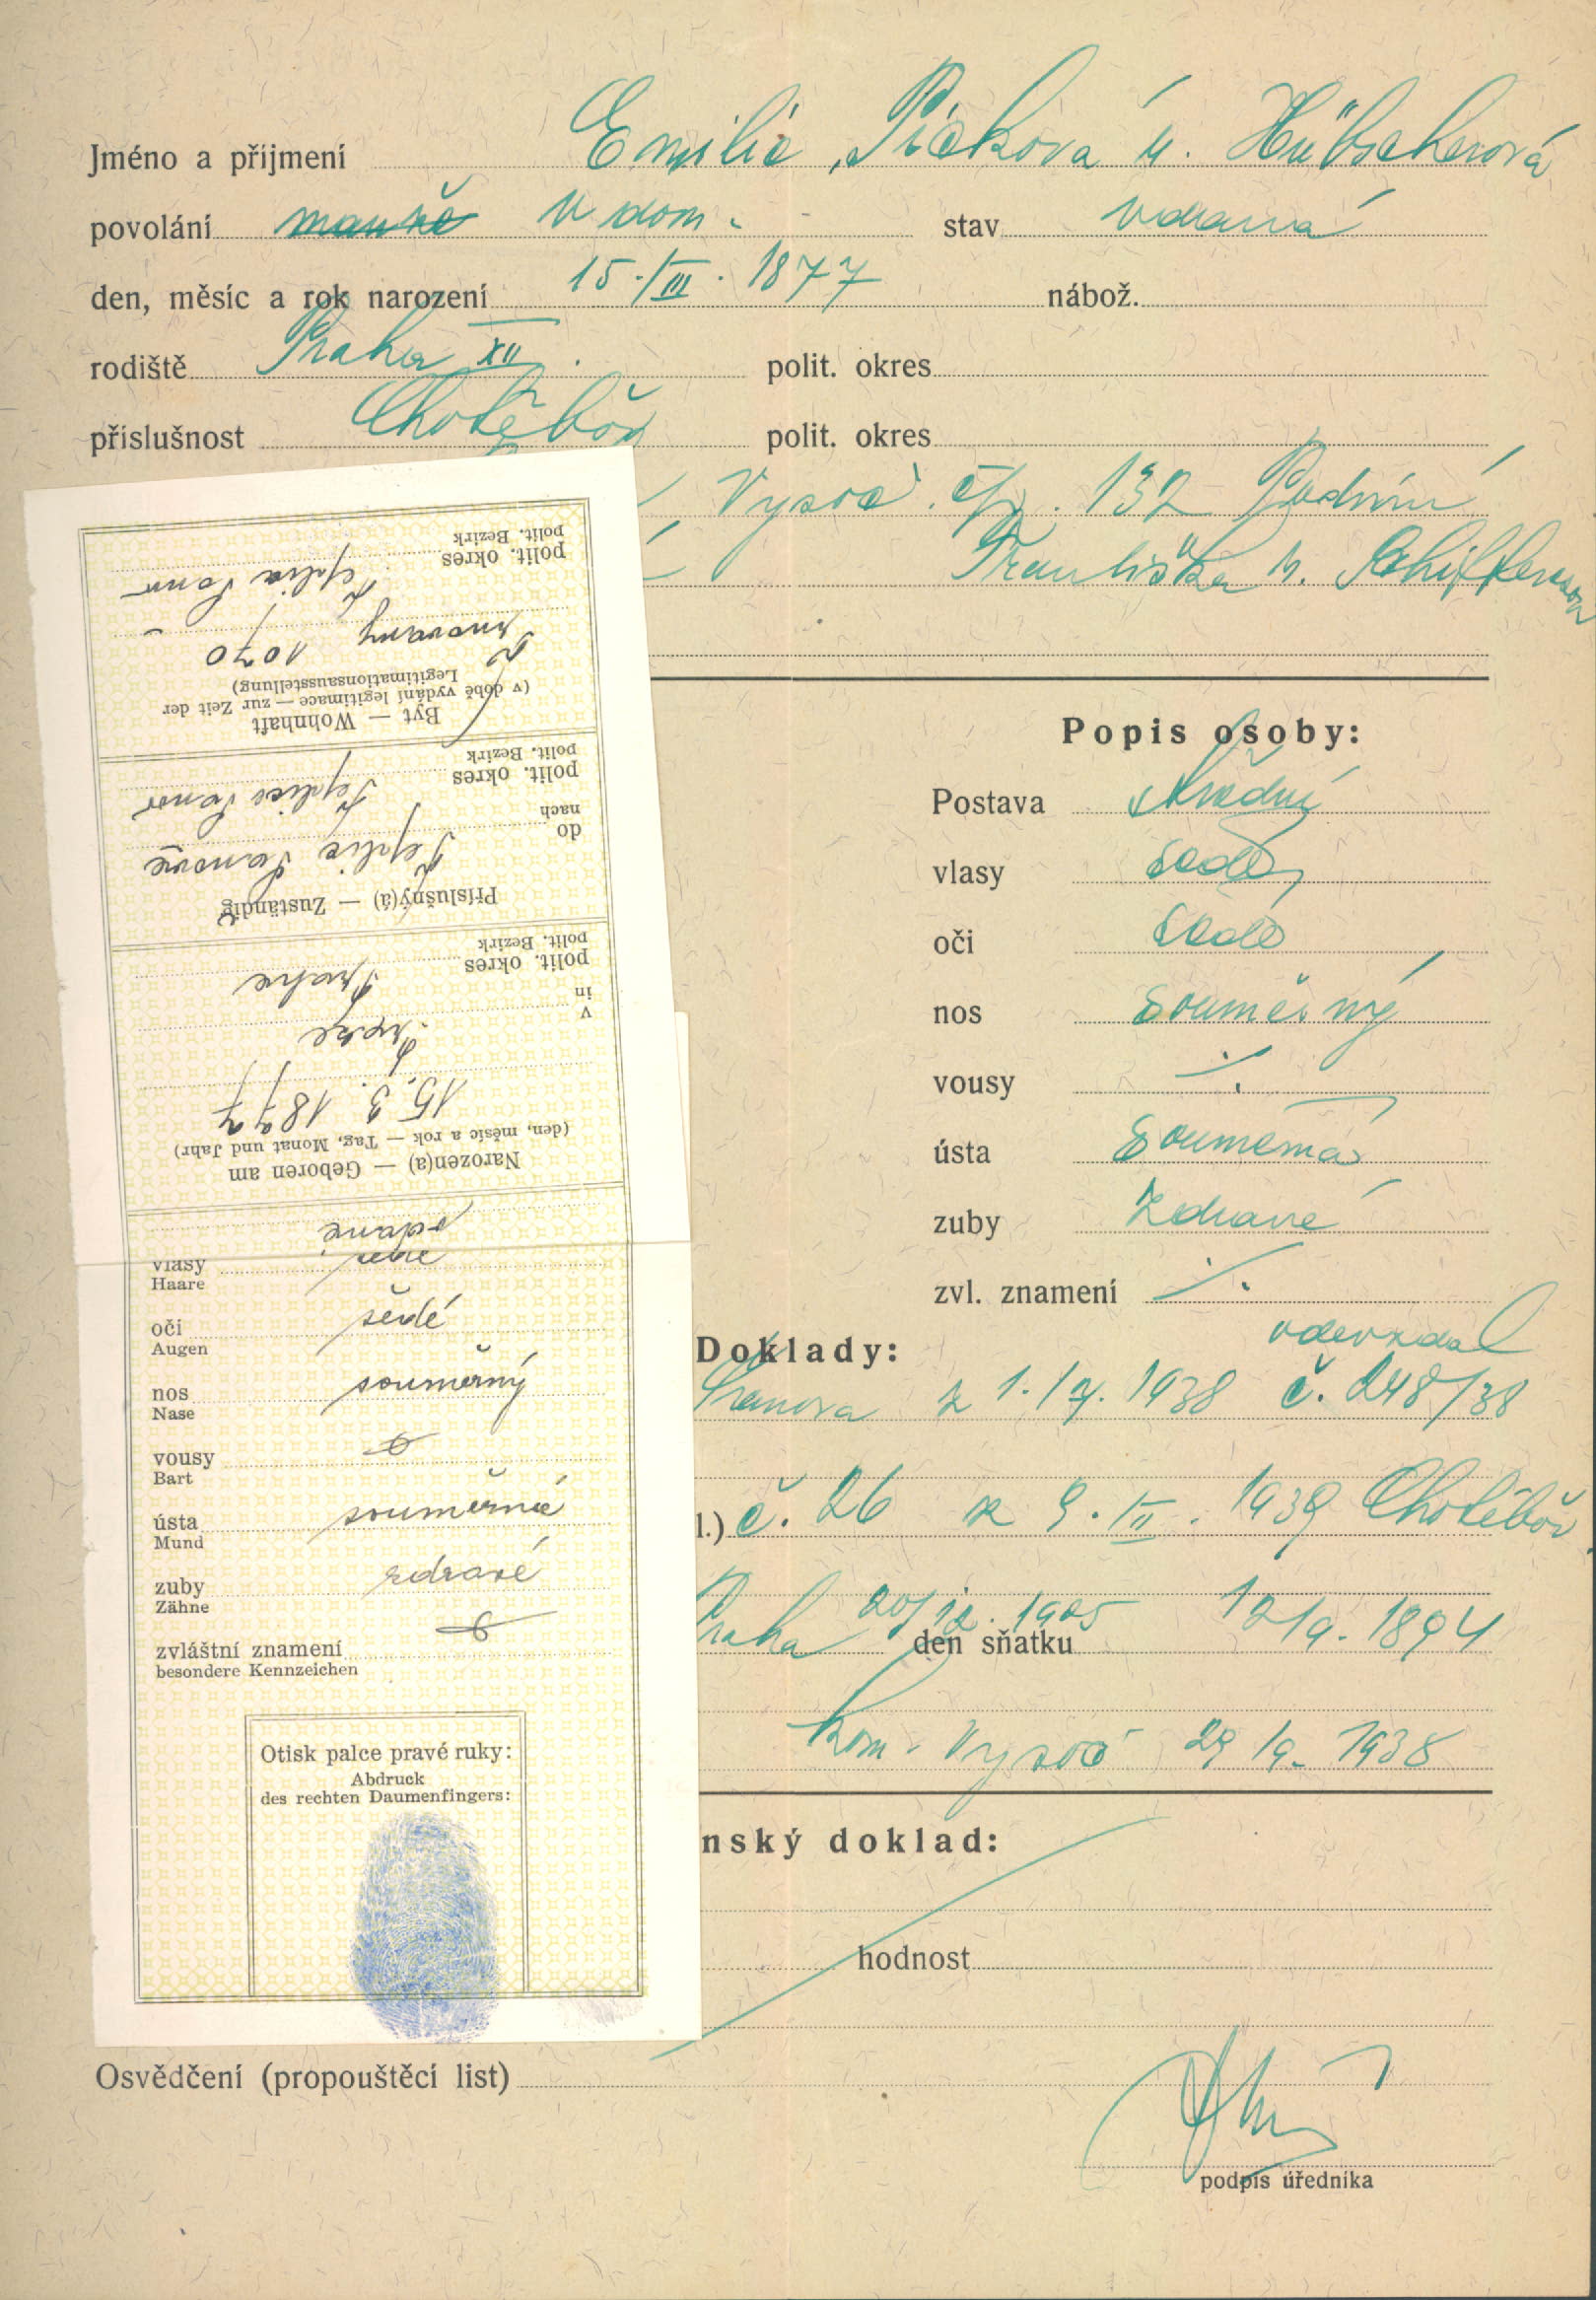 Jméno a příjmení Emilie Picková r. Hübscherová
povolání manže v dom. stav vdaná
den, měsíc a rok narození 15./III. 1877 nábož.
rodiště Praha XII. polit. okres
příslušnost Chotěboř polit. okres
Vysoč. čp. 132
Františka r.
Popis osoby:
Postava střední
vlasy šedé
oči šedé
nos souměrný
vousy ./.
ústa souměrná
zuby zdravé
zvl. znamení ./.
Doklady: odevzdal
z 1./7. 1938 č. 248/38
l.) č. 26 z 9./II. 1939 Chotěboř
20/12. 1905
Praha den sňatku 12/9. 1894
kom. Vysoč 29/9. 1938
nský doklad:
hodnost
Osvědčení (propouštěcí list)
podpis úředníka
vdané
Narozen(a) — Geboren am
(den, měsíc a rok — Tag, Monat und Jahr)
15. 3. 1877
v Praze
in
polit. okres Praha
polit. Bezirk
Příslušný(á) — Zuständig
do Teplic Šanova
nach
polit. okres Teplice Šanov
polit. Bezirk
Byt — Wohnhaft
(v době vydání legitimace — zur Zeit der
Legitimationsausstellung)
Trnovany 1070
polit. okres Teplice Šanov
polit. Bezirk
vlasy šedé
Haare
oči šedé
Augen
nos souměrný
Nase
vousy
Bart
ústa souměrná
Mund
zuby zdravé
Zähne
zvláštní znamení
besondere Kennzeichen
Otisk palce pravé ruky:
Abdruck
des rechten Daumenfingers: